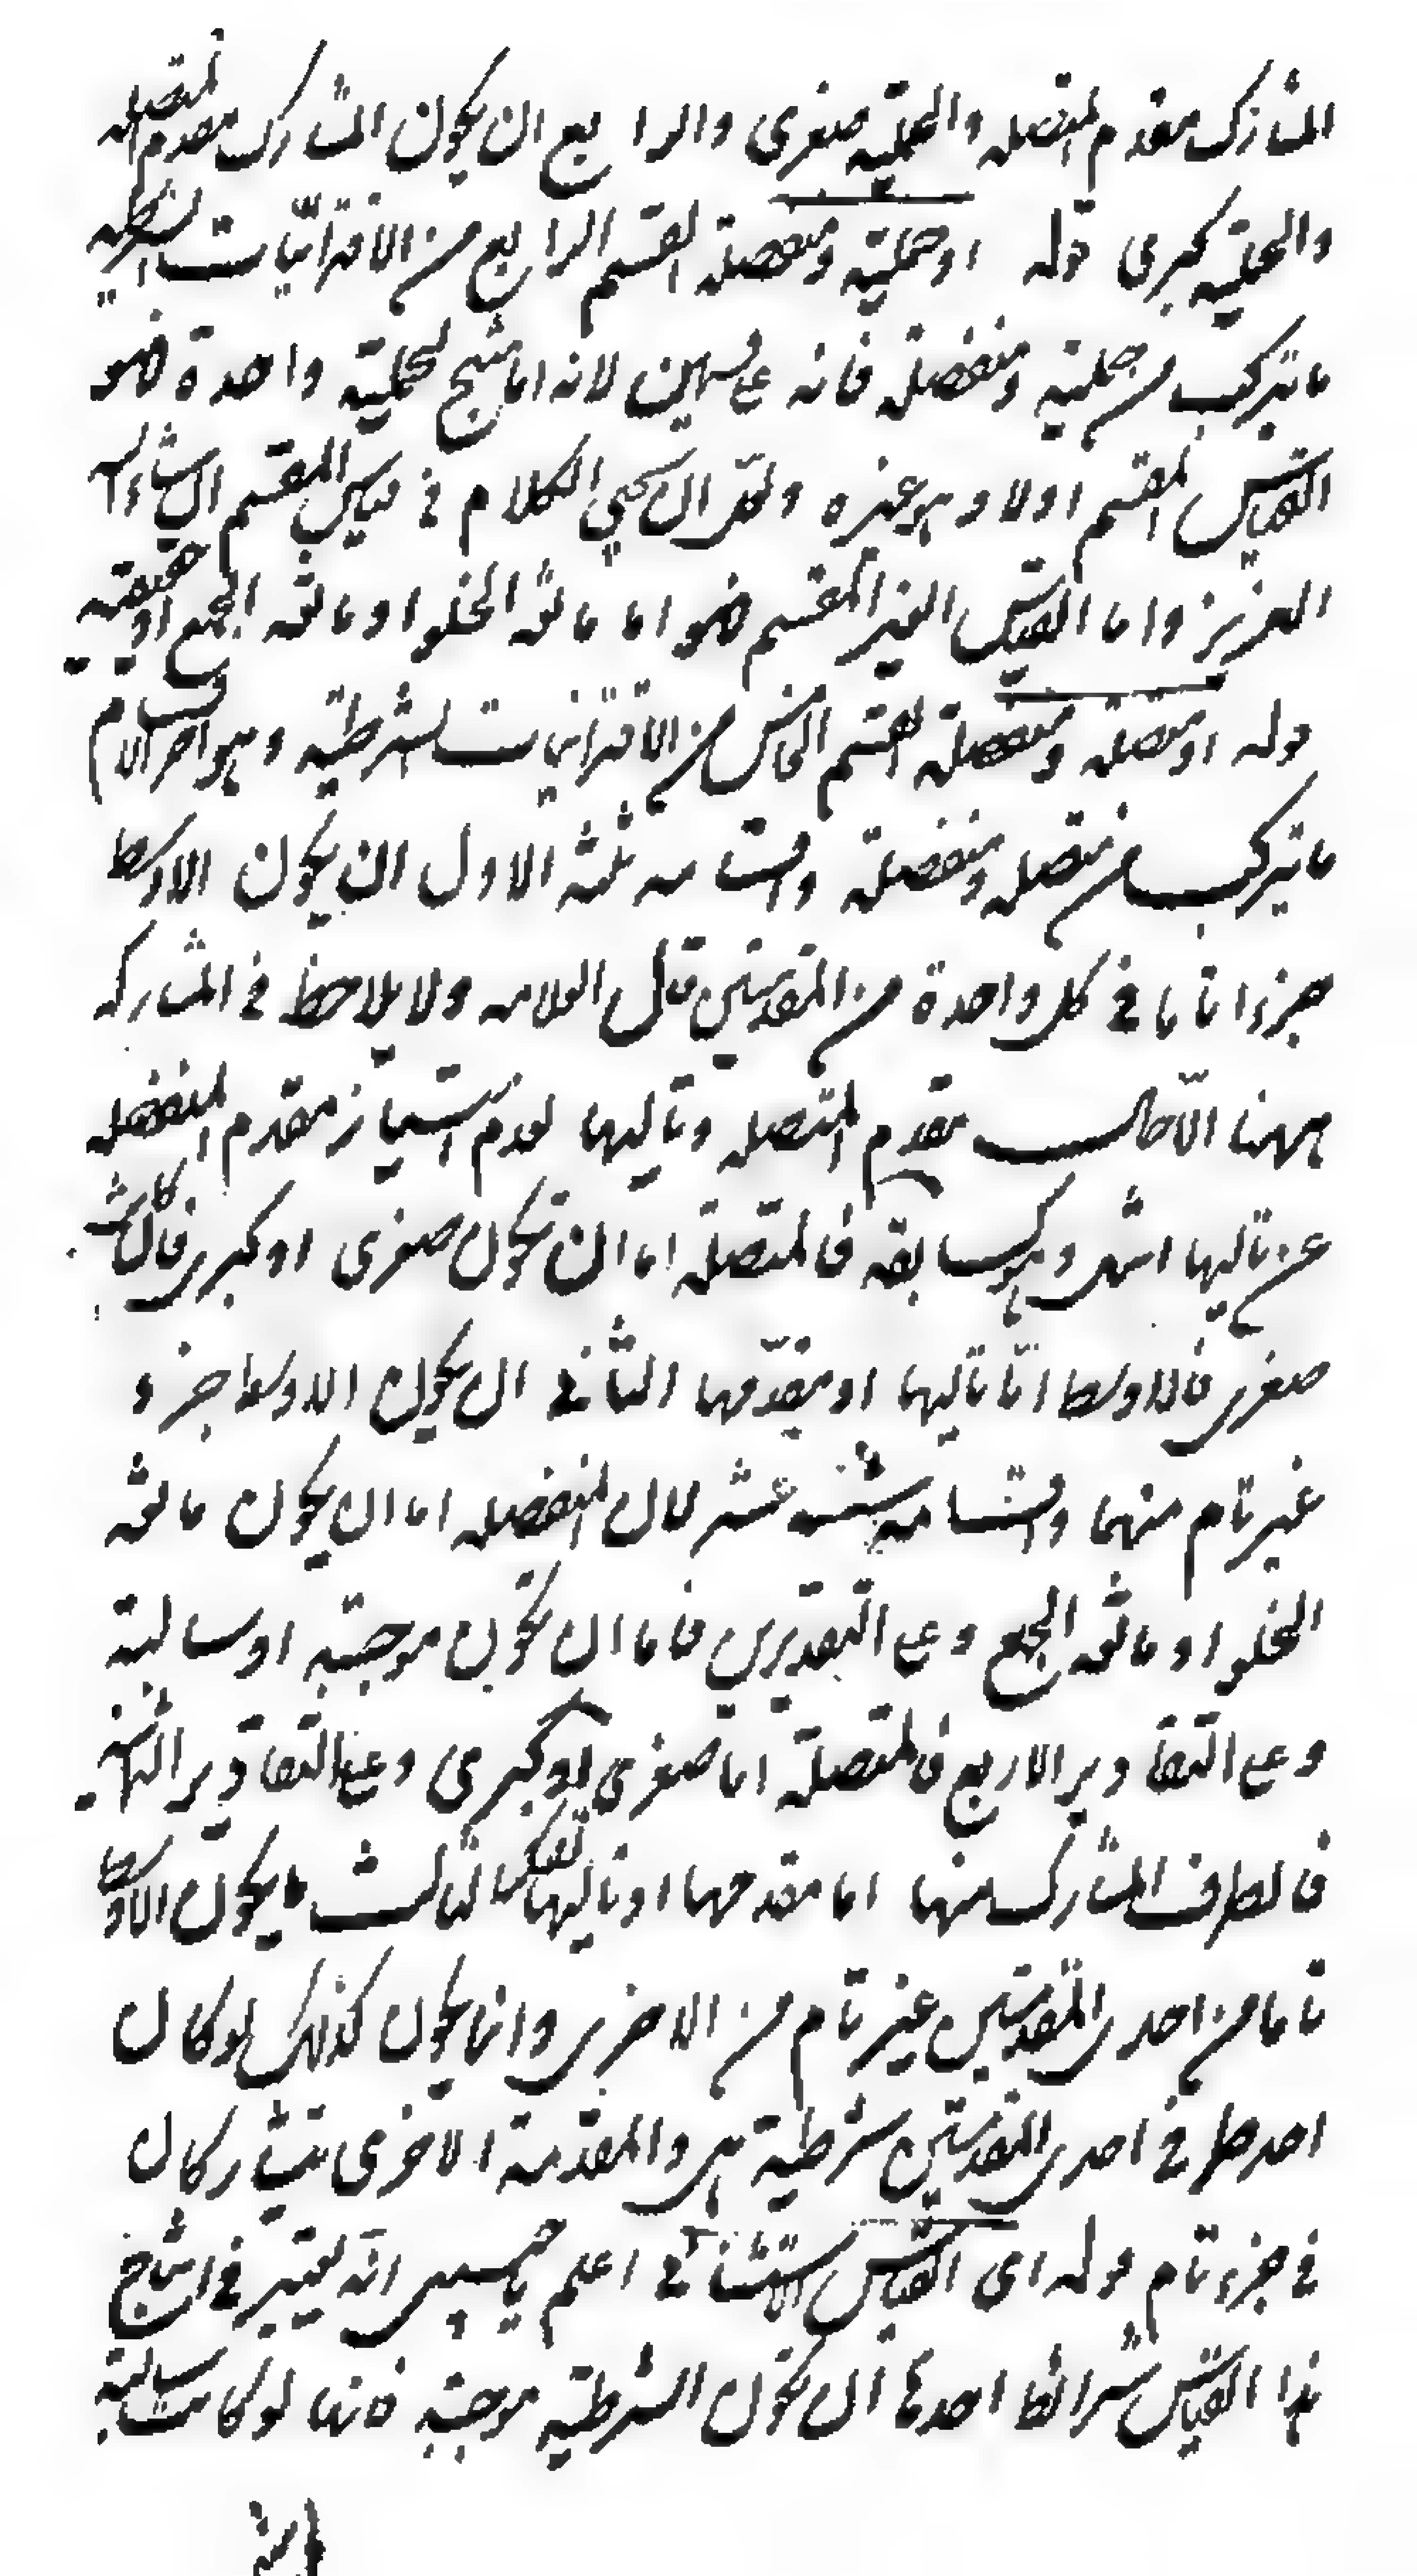 المشارك مقدم المتصله والحمليّه صغرى والرابع ان يكون المشارك مقدم المتصله
والحمليّه كبرى قوله او حمليّه ومنفصلة القسم الرابع من الاقترانيّات الشرطيه
ما يتركب من حمليّه ومنفصلة فانه ع قسمين لانه اما منتج لحمليّه واحدة فهو
القياس المقسم اولا وهو غيره ولعل ان يجي الكلام في قياس المقسم ان شاء الله
العزيز واما القياس الغير المقسم فهو اما مانعة الخلو او مانعه الجمع او حقيقيه
قوله او متصله ومنفصلة القسم الخامس من الاقترانيات الشرطيّه وهو اخر الاقسام
ما يتركب من متصله ومنفصلة واقسامه ثلثه الاول ان يكون الاوسط
جزءا تاما في كل واحدة من المقدمتين قال العلامه ولا يلاحظ في المشاركه
ههنا الّا حال مقدم المتصله وتاليها لعدم امتياز مقدم المنفصله
عن تاليها فالمتصلة اما ان تكون صغرى او كبرى فان كانت
صغرى فالاوسط امّا تاليها او مقدّمها الثاني ان يكون الاوسط جزء
غير تام منهما واقسامه ستة عشر لان المنفصله اما ان يكون مانعه
الخلو او مانعه الجمع وع التقديرين فاما ان تكون موجبة او سالبة
وع التقادير الاربع فالمتصلة اما صغرى او كبرى وع التقادير الثمانيه
فالطرف المشارك منها اما مقدمها او تاليها الثالث ما يكون الاوسط
تاما من احدى المقدمتين غير تام من الاخرى وانما يكون كذلك لو كان
احد طرفي احدى المقدمتين شرطية هي والمقدمة الاخرى تتشاركان
في جزء تام قوله اى القياس الاستثنائي اعلم انّه يعتبر في انتاج
هذا القياس شرائط احدها ان تكون الشرطيه موجبة فانها لو كانت سالبة